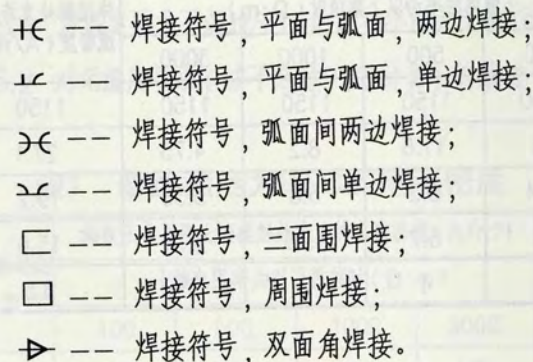 -- 焊接符号，平面与弧面，两边焊接；
-- 焊接符号，平面与弧面，单边焊接；
-- 焊接符号，弧面间两边焊接；
-- 焊接符号，弧面间单边焊接；
-- 焊接符号，三面围焊接；
-- 焊接符号，周围焊接；
-- 焊接符号，双面角焊接。